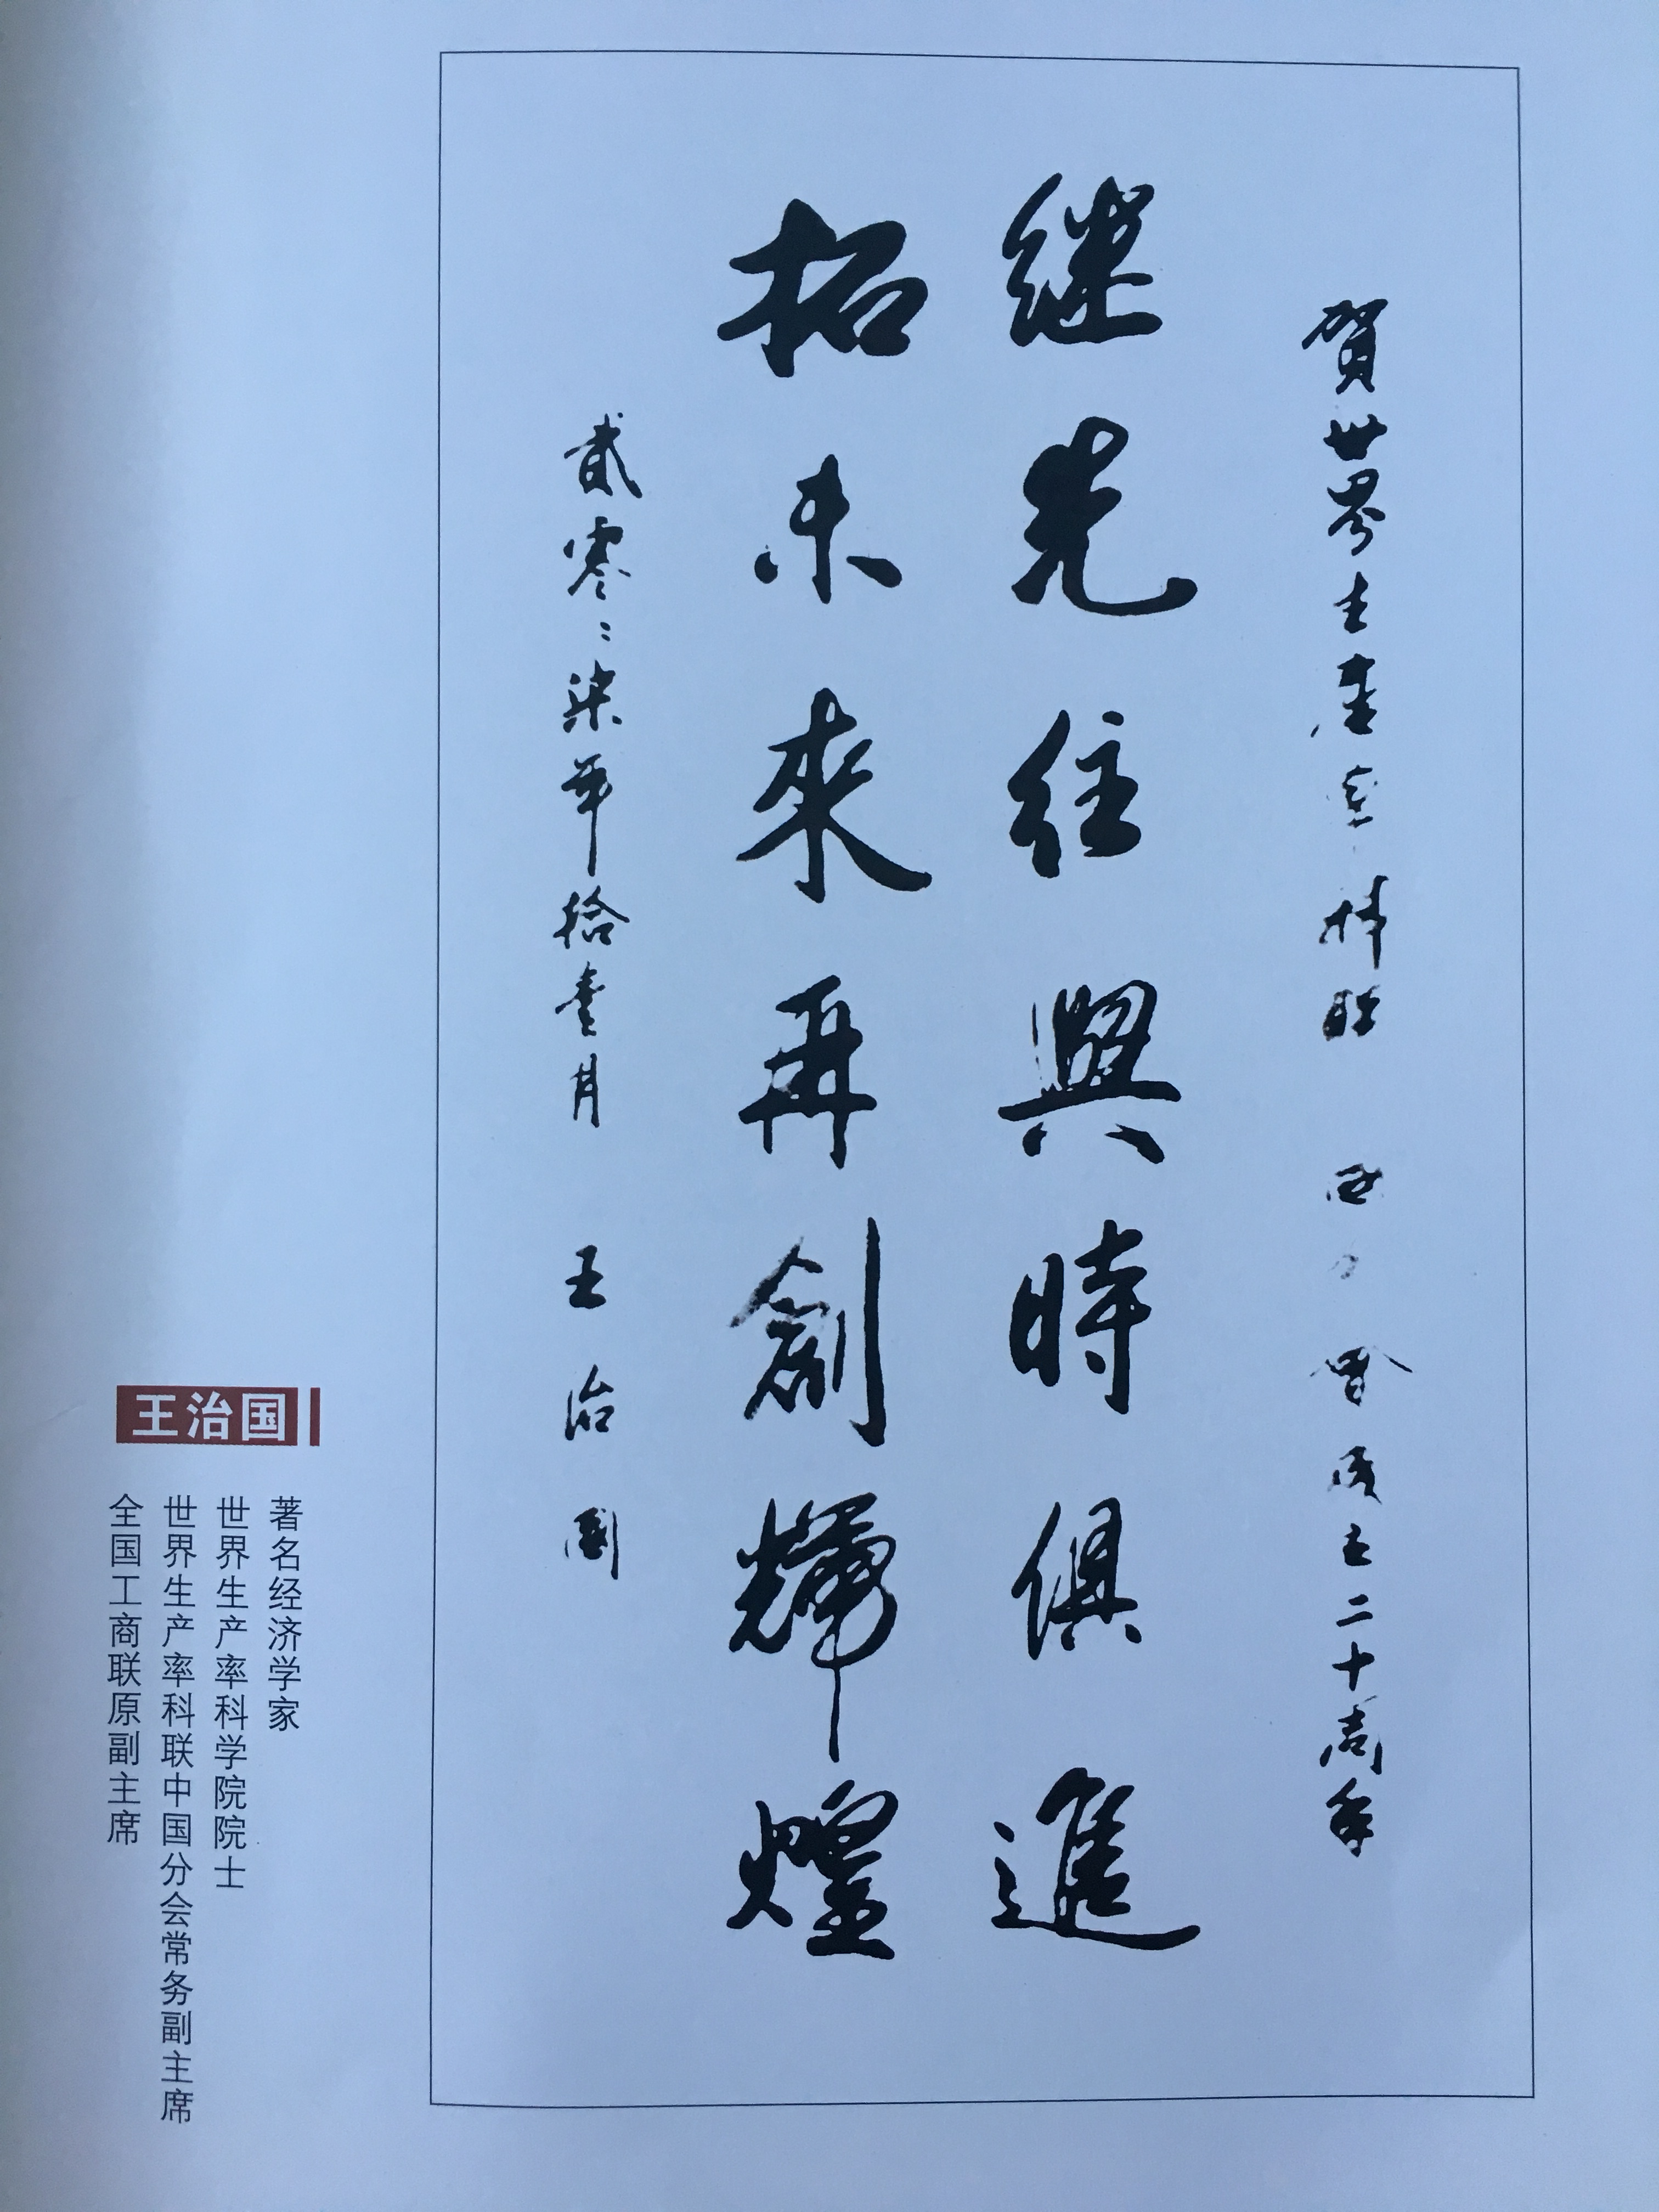 賀世界生產率科联国會成立二十周年
继先往與時俱進
拓未來再創輝煌
貳零〻柒年拾壹月 王治國
王治国
著名经济学家
世界生产率科学院院士
世界生产率科联中国分会常务副主席
全国工商联原副主席